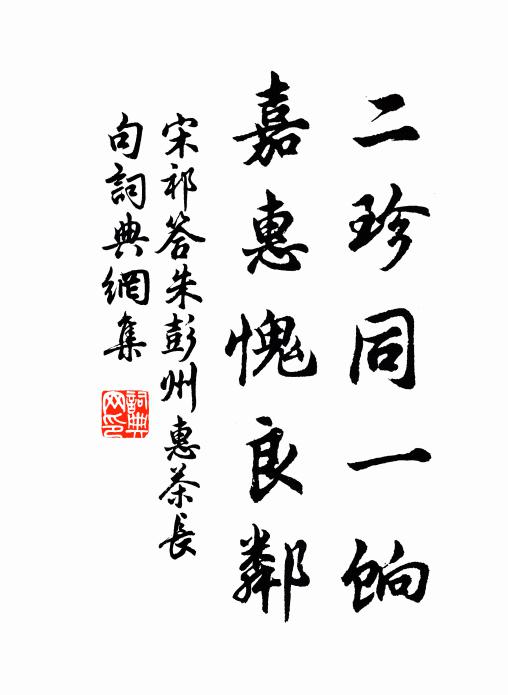 二珍同一餉
嘉惠愧良鄰
宋祁答朱彭州惠茶長
句詞典網集
詞典
网印